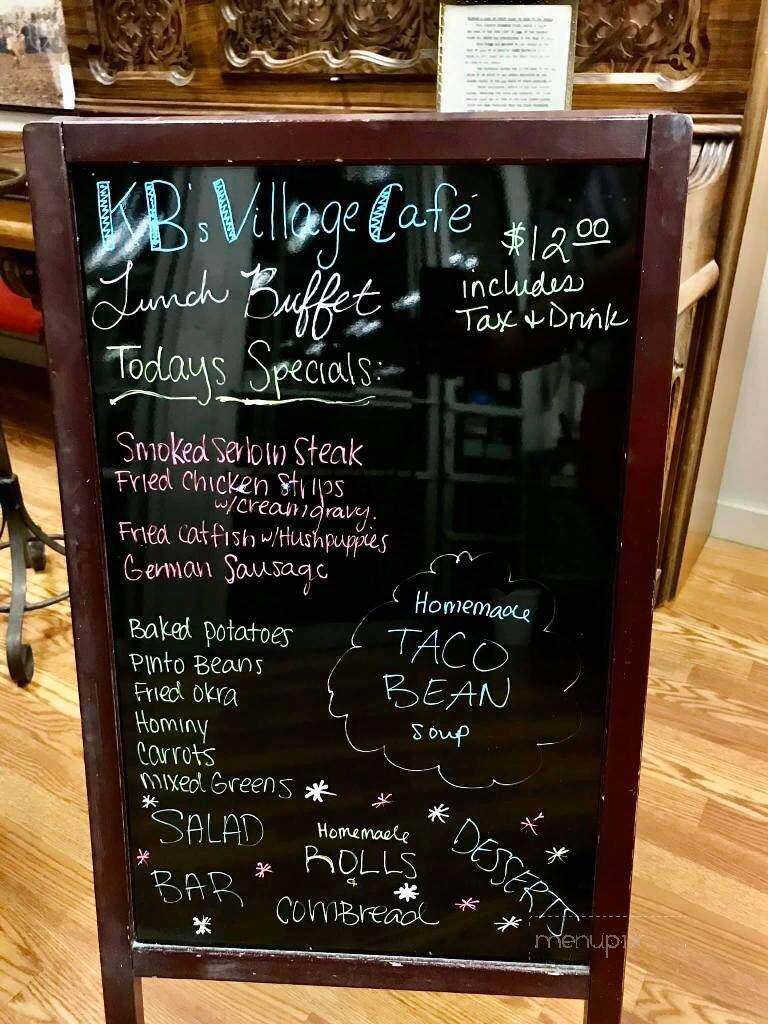 KB's Village Café
$12.00
includes
Tax & Drink
Lunch Buffet
Todays Specials:
Smoked Serloin Steak
Fried Chicken Strips
w/creamgravy.
Fried Catfish w/Hushpuppies
German Sausage
Baked potatoes
Pinto Beans
Fried Okra
Hominy
Carrots
mixed Greens
Homemade
TACO
BEAN
Soup
SALAD
BAR
Homemade
ROLLS
&
CornBread
DESSERTS
menupix